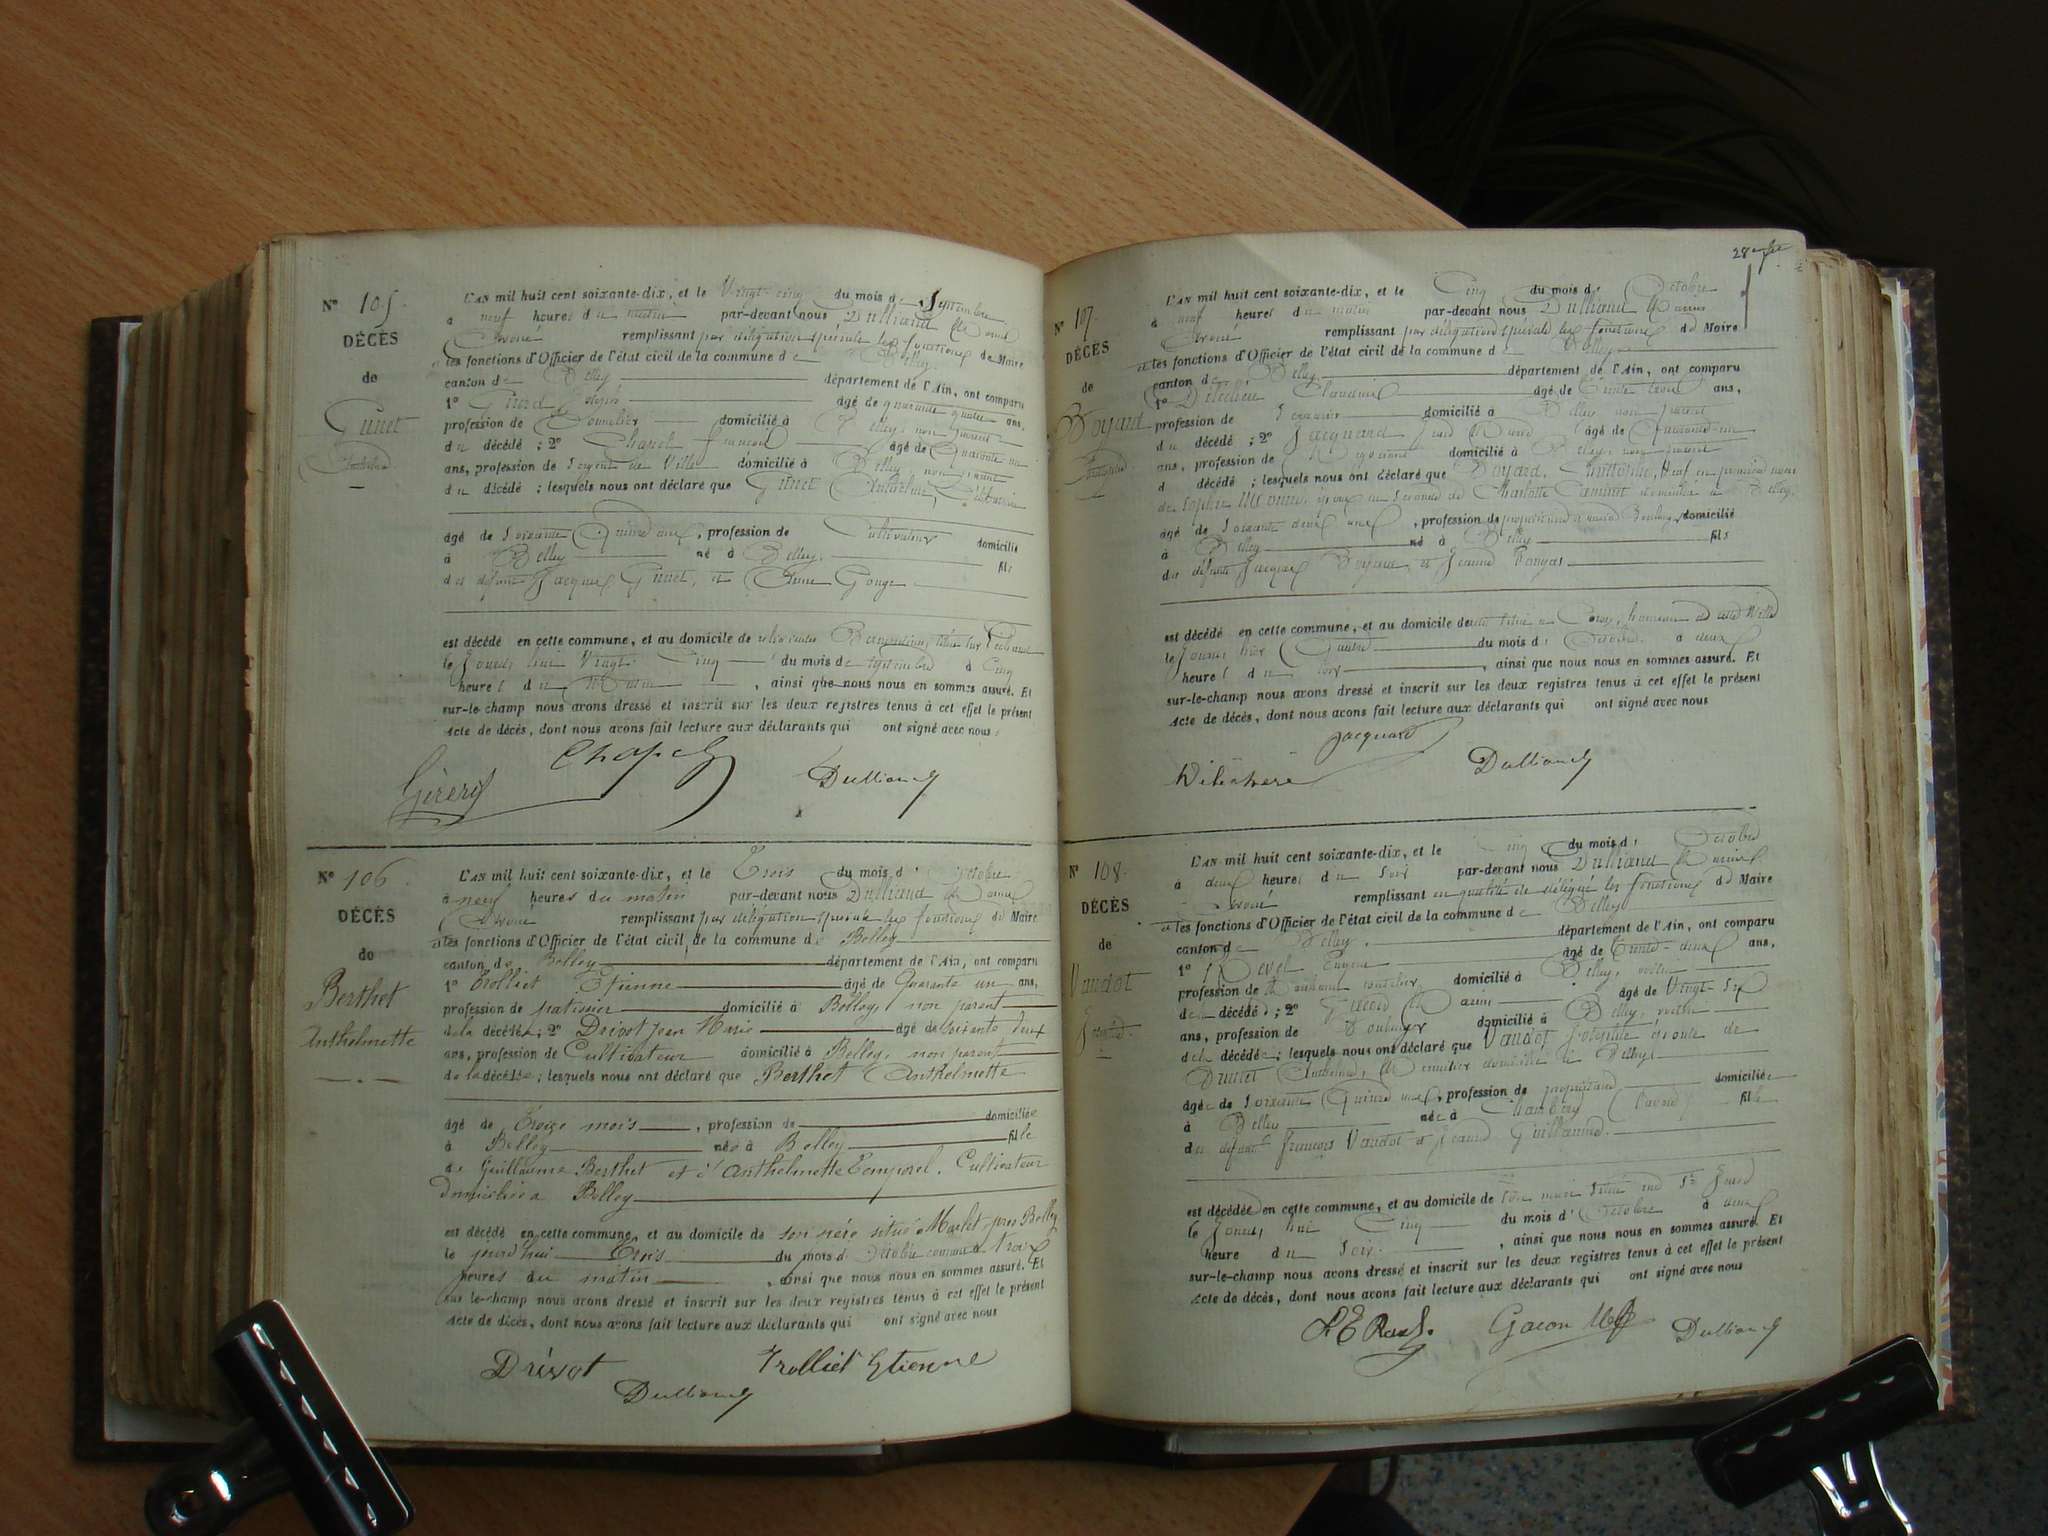 N° 105.
DÉCÈS
de
L'AN mil huit cent soixante-dix, et le Vingt-cinq du mois de Septembre
à neuf heures du matin par-devant nous Dulliand
Avoué remplissant par délégation spéciale les fonctions de Maire
et les fonctions d'Officier de l'état civil de la commune de Belley
canton de Belley département de l'Ain, ont comparu
1° âgé de quarante quatre ans,
profession de domicilié à Belley, non parent
du décédé ; 2° Chapel François âgé de Quarante un
ans, profession de Sergent de Ville domicilié à Belley non parent
du décédé ; lesquels nous ont déclaré que
âgé de Soixante Quinze ans, profession de Cultivateur domicilié
à Belley né à Belley. fils
des défunts Jacques et Anne Gonge
est décédé en cette commune, et au domicile de
le Jourd'hui Vingt-Cinq du mois de septembre à Cinq
heures du Matin, ainsi que nous nous en sommes assuré. Et
sur-le-champ nous avons dressé et inscrit sur les deux registres tenus à cet effet le présent
Acte de décès, dont nous avons fait lecture aux déclarants qui ont signé avec nous.
Chapel
Dulliand
N° 106.
DÉCÈS
de
Berthet
Anthelmette
L'AN mil huit cent soixante-dix, et le Trois du mois d'Octobre
à neuf heures du matin par-devant nous Dulliand
Avoué remplissant par délégation spéciale les fonctions de Maire
et les fonctions d'Officier de l'état civil de la commune de Belley
canton de Belley département de l'Ain, ont comparu
1° Trolliet Etienne âgé de Quarante un ans,
profession de patissier domicilié à Belley, non parent
de la décédée ; 2° Drivot Jean Marie âgé de soixante deux
ans, profession de Cultivateur domicilié à Belley, non parent
de la décédée ; lesquels nous ont déclaré que Berthet Anthelmette
âgée de Treize mois, profession de domiciliée
à Belley née à Belley fille
de Guillaume Berthet et d'Anthelmette Temporel, Cultivateur
Domicilié à Belley
est décédé en cette commune, et au domicile de son père situé près Belley
le jourd'hui Trois du mois d'Octobre courant à trois
heures du matin, ainsi que nous nous en sommes assuré. Et
sur-le-champ nous avons dressé et inscrit sur les deux registres tenus à cet effet le présent
Acte de décès, dont nous avons fait lecture aux déclarants qui ont signé avec nous
Drivot Trolliet Etienne
Dulliand
28
N° 107.
DÉCÈS
de
Boyard
L'AN mil huit cent soixante-dix, et le Cinq du mois d'Octobre
à neuf heures du matin par-devant nous Dulliand
Avoué remplissant par délégation spéciale les fonctions de Maire
et les fonctions d'Officier de l'état civil de la commune de Belley
canton de Belley département de l'Ain, ont comparu
1° Claudius âgé de Trente trois ans,
profession de domicilié à Belley non parent
du décédé ; 2° Jacquand âgé de Quarante-un
ans, profession de domicilié à Belley, non parent
du décédé ; lesquels nous ont déclaré que Boyard, veuf en première noces
de Sophie époux en seconde de Charlotte domicilié à Belley,
âgé de Soixante deux ans, profession de domicilié
à Belley né à Belley fils
des défunts Jacques Boyard et Jeanne
est décédé en cette commune, et au domicile de
le Jourd'hui Quatre du mois d'Octobre à deux
heures du soir, ainsi que nous nous en sommes assuré. Et
sur-le-champ nous avons dressé et inscrit sur les deux registres tenus à cet effet le présent
Acte de décès, dont nous avons fait lecture aux déclarants qui ont signé avec nous
Jacquand
Dulliand
N° 108.
DÉCÈS
de
Vaudot
L'AN mil huit cent soixante-dix, et le Cinq du mois d'Octobre
à deux heures du soir par-devant nous Dulliand
Avoué remplissant en qualité de délégué les fonctions de Maire
et les fonctions d'Officier de l'état civil de la commune de Belley
canton de Belley département de l'Ain, ont comparu
1° Revel Eugène âgé de Trente-deux ans,
profession de domicilié à Belley, voisin
de la décédée ; 2° âgé de Vingt-six
ans, profession de Boulanger domicilié à Belley, voisin
de la décédée ; lesquels nous ont déclaré que Vaudot Josephte épouse de
domicilié à Belley
âgée de Soixante Quinze ans, profession de domiciliée
à Belley née à Chambéry (Savoie) fille
des défunts François Vaudot et Jeanne Guillermin
est décédée en cette commune, et au domicile de son mari situé
le Jourd'hui Cinq du mois d'Octobre à deux
heure du Soir, ainsi que nous nous en sommes assuré. Et
sur-le-champ nous avons dressé et inscrit sur les deux registres tenus à cet effet le présent
Acte de décès, dont nous avons fait lecture aux déclarants qui ont signé avec nous
Gacon Dulliand